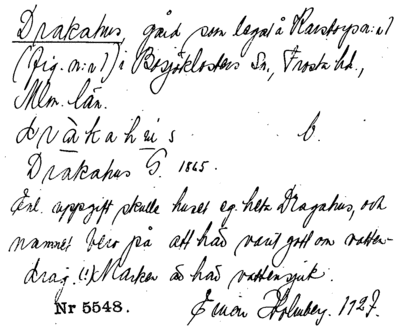 Drakahus, gård som legat å Karstorps n:o 1
(fig. n:o 1) i Bosjöklosters Sn, Frosta hd.,
Mlm. län.
dràkahùs b.
Drakahus G. 1865.
Enl. uppgift skulle huset eg. heta Dragahus, och
namnet bero på att här varit gott om vatten-
drag. (!) Marken är här vattensjuk.
Nr 5548. Holmberg. 1927.